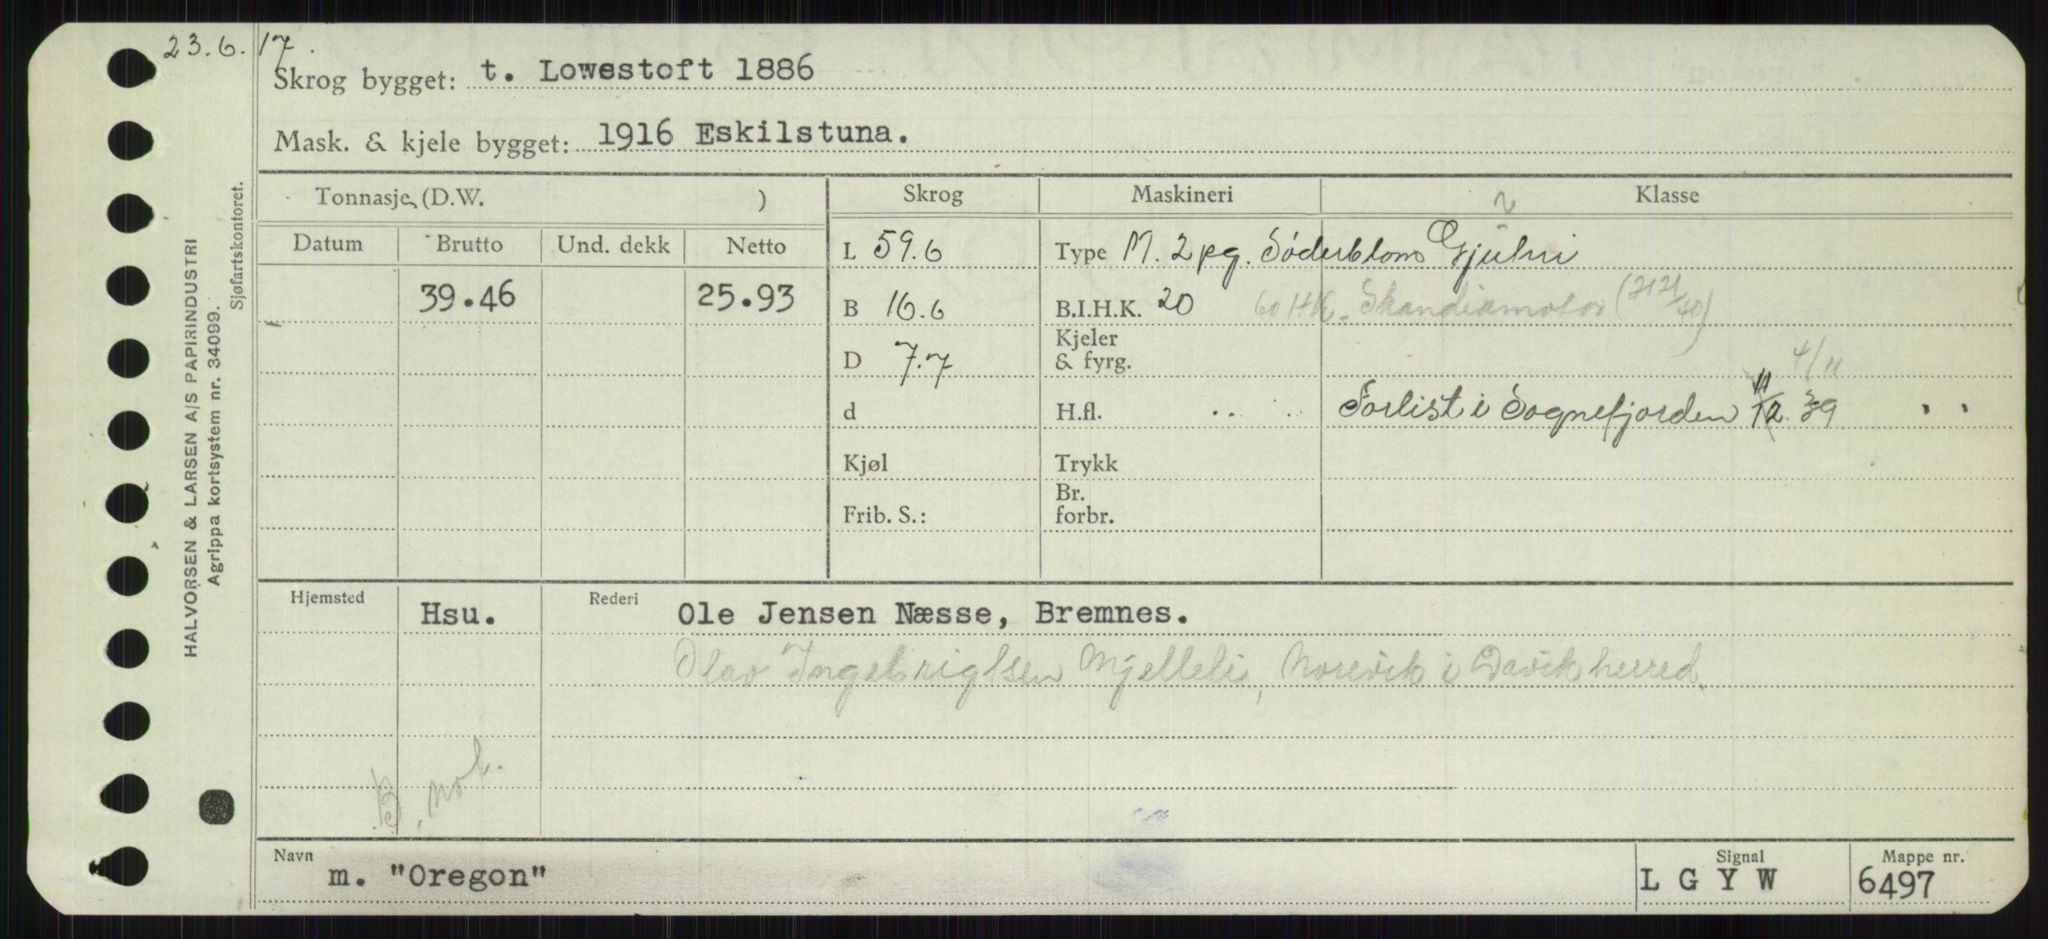 23.6.17.
Skrog bygget: t. Lowestoft 1886
Mask. & kjele bygget: 1916 Eskilstuna.
HALVORSEN & LARSEN A/S PAPIRINDUSTRI
Agrippa kortsystem nr. 34099.
Sjøfartskontoret.
Tonnasje (D.W. ) Skrog Maskineri Klasse
Datum Brutto Und. dekk Netto
L 59.6 Type M. 2 pg. Söderblom
39.46 25.93 B 16.6 B.I.H.K. 20 60 HK. Skandiamotor
D 7.7 Kjeler
& fyrg.
4/11
d H.fl. Forlist i Sognefjorden 39
Kjøl Trykk
Frib. S.: Br.
forbr.
Hjemsted Hsu. Rederi Ole Jensen Næsse, Bremnes.
Olav Ingebrigtsen Mjellelie, Norevik i Davik herred.
B. not.
Navn m. "Oregon" Signal L G Y W Mappe nr. 6497